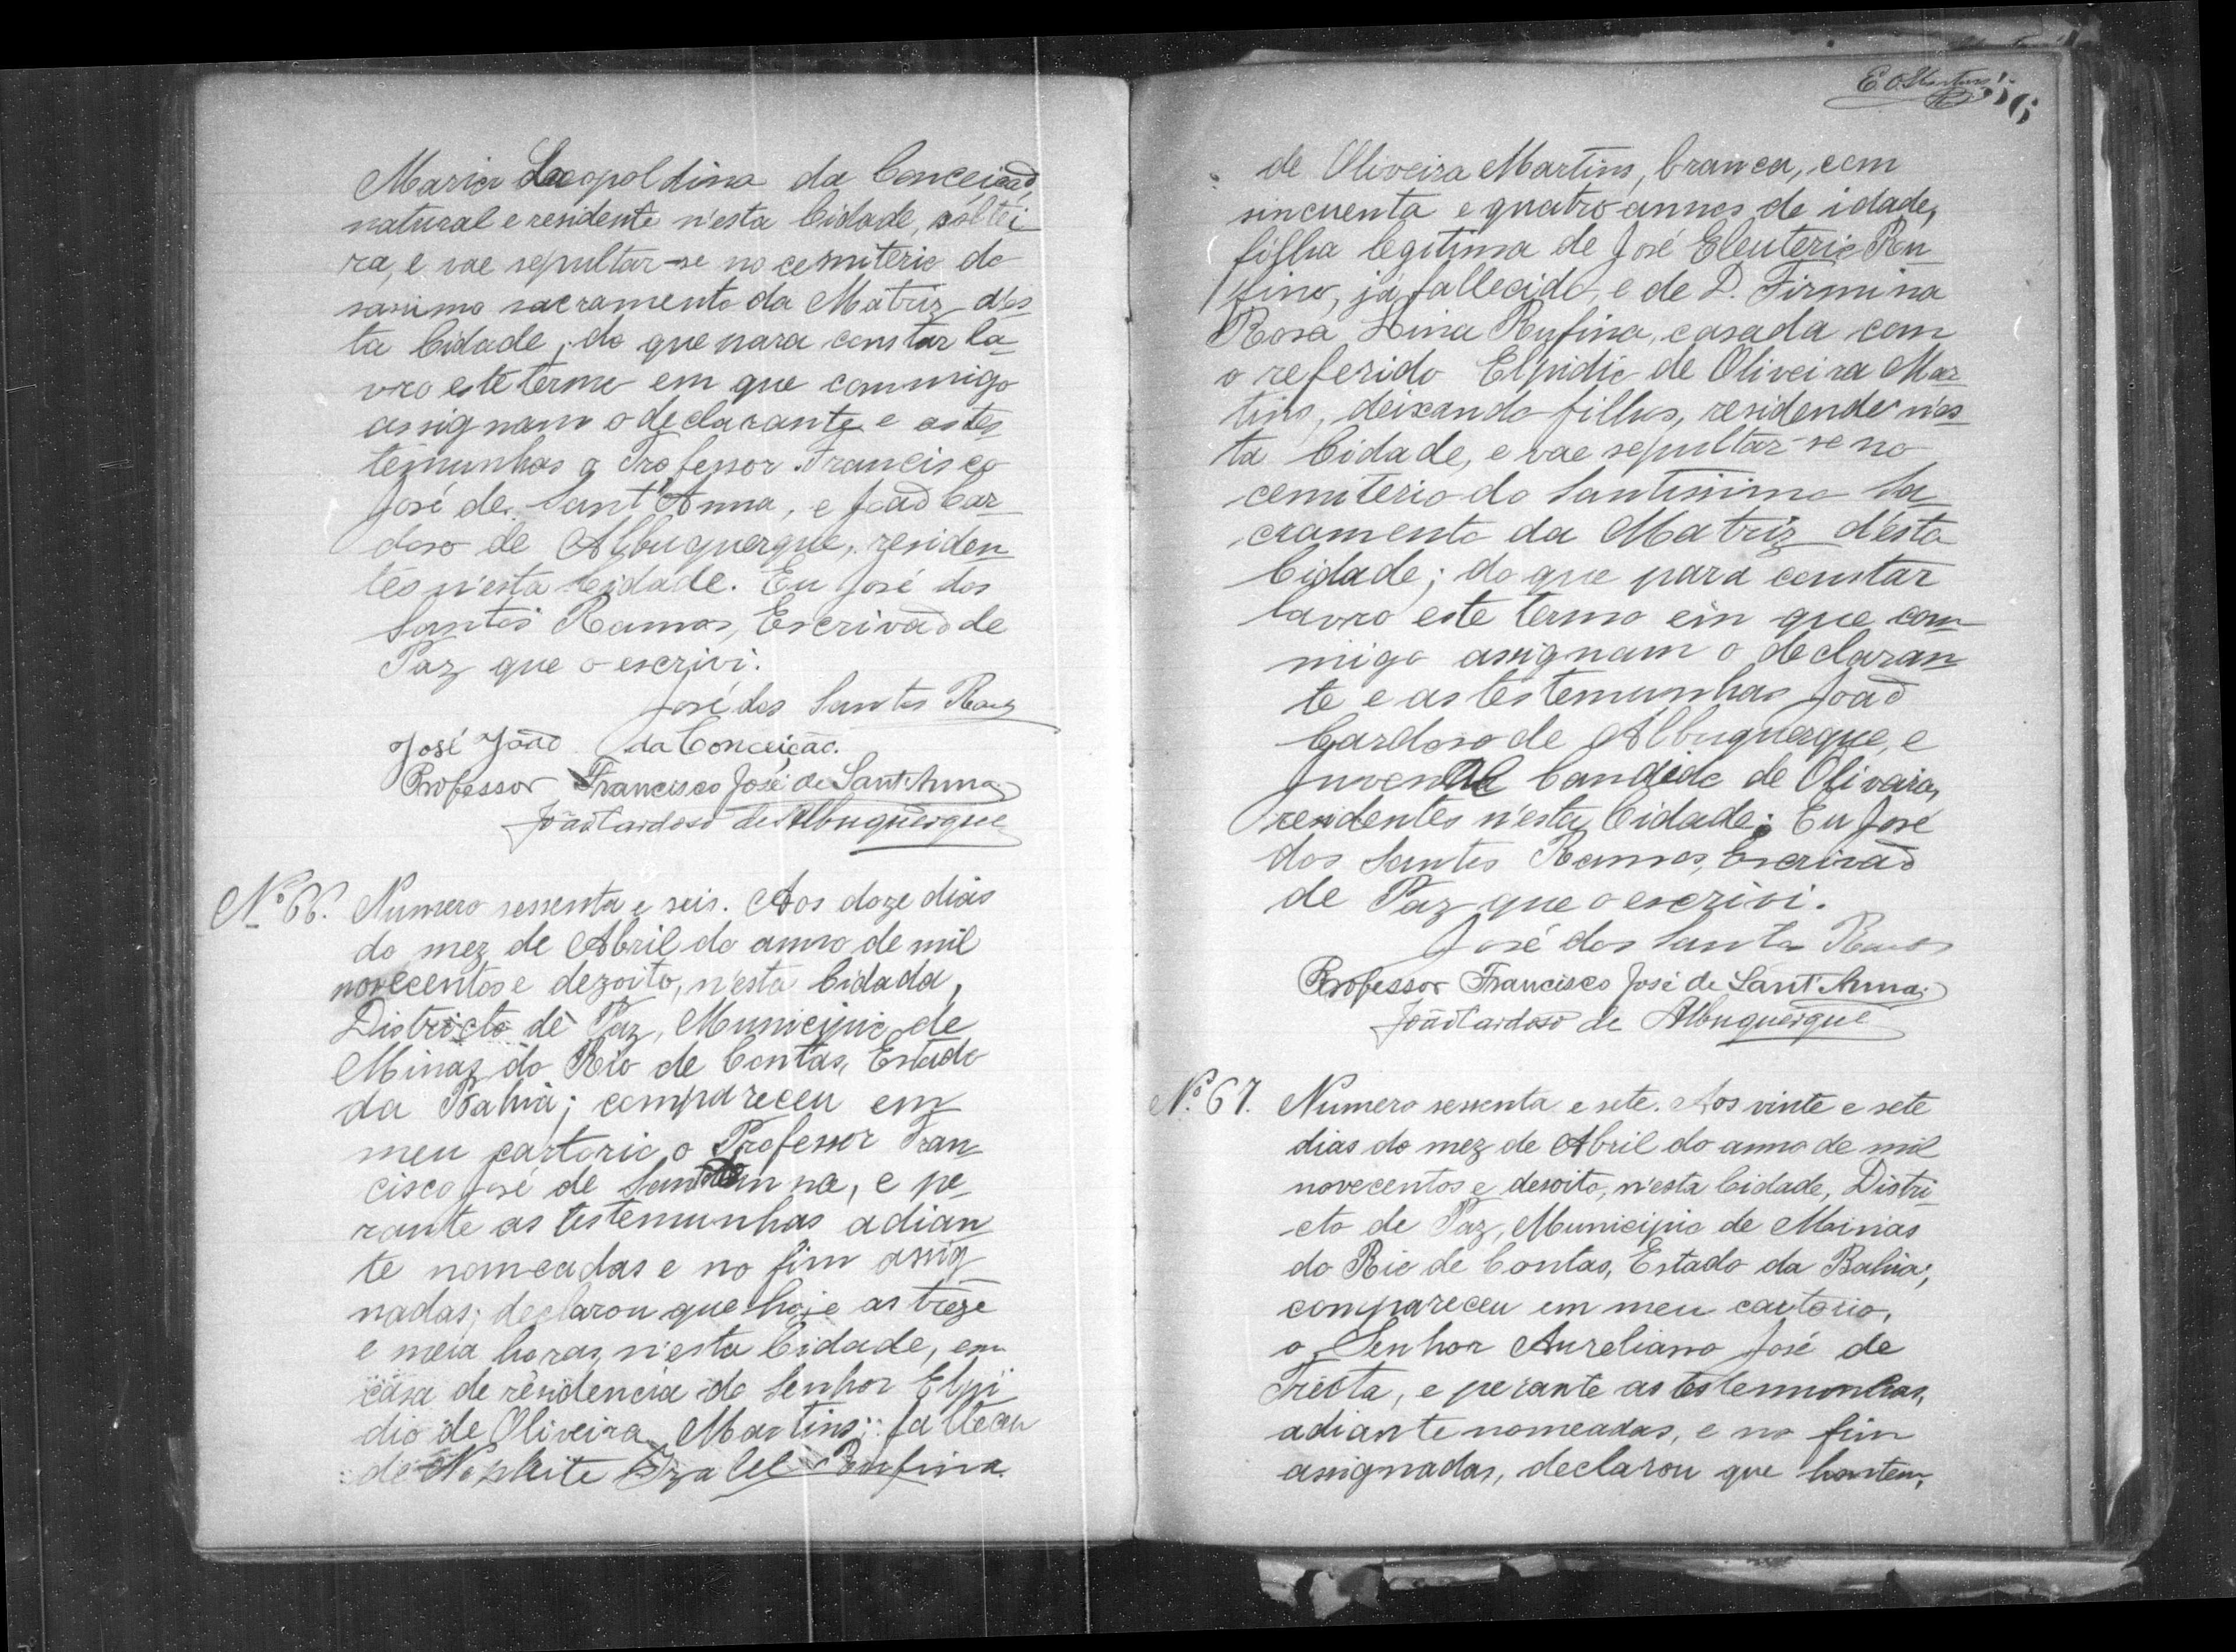 Maria Leopoldina da Conceição,
natural e residente n'esta Cidade, soltei
ra, e vae sepultar-se no cemiterio do
sassimo sacramento da Matriz d'es
ta Cidade; do que para constar la
vro este termo em que commigo
assignam o declarante e as tes
temunhas o Professor Francisco
José de Sant'Anna, e João Car
doso de Albuquerque, residen
tes n'esta Cidade. Eu José dos
Santos Ramos, Escrivão de
Paz que o escrivi.
José dos Santos Ramos
José João da Conceição.
Professor Francisco José de Sant'Anna
João Cardoso de Albuquerque
Nº 66. Numero sessenta e seis. Aos doze dias
do mez de Abril do anno de mil
novecentos e dezoito, n'esta Cidada,
Districto de Paz, Municipio de
Minas do Rio de Contas, Estado
da Bahia; compareceu em
meu cartorio o Professor Fran
cisco José de Sant'Anna, e pe
rante as testemunhas adian
te nomeadas e no fim assig
nadas; declarou que hoje as treze
e meia horas, n'esta Cidade, em
casa de residencia do Senhor Elpi
dio de Oliveira Martins; falleceu
de Nephrite Izabel Rufina
E. O. Martins 56
de Oliveira Martins, branca, com
sincuenta e quatro annos de idade,
filha legitima de José Eleuterio Ru
fino, já fallecido, e de D. Firmina
Rosa Lina Rufina, casada com
o referido Elpidio de Oliveira Mar
tins, deixando filhos, residende n'es
ta Cidade, e vae sepultar-se no
cemiterio do Santissimo Sa
cramento da Matriz d'esta
Cidade; do que para constar
lavro este termo em que com
migo assignam o declaran
te e as testemunhas João
Cardoso de Albuquerque, e
Juvenal Candido de Oliveira,
residentes n'esta Cidade; Eu José
dos Santos Ramos, Escrivão
de Paz que o escrivi.
José dos Santos Ramos
Professor Francisco José de Sant'Anna.
João Cardoso de Albuquerque
Nº 67. Numero sessenta e sete. Aos vinte e sete
dias do mez de Abril do anno de mil
novecentos e desoito, n'esta Cidade, Distri
cto de Paz, Municipio de Minas
do Rio de Contas, Estado da Bahia;
compareceu em meu cartorio,
o Senhor Aureliano José de
, e perante as testemunhas,
adiante nomeadas, e no fim
assignadas, declarou que hontem,